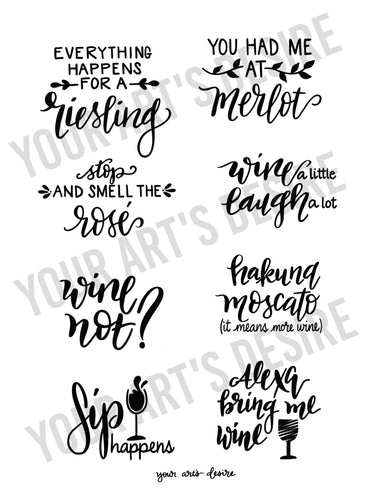 EVERYTHING
HAPPENS
FOR A
riesling
YOU HAD ME
AT
merlot
stop
AND SMELL THE
rosé
wine a little
laugh a lot
wine
not?
hakuna
moscato
(it means more wine)
Sip
happens
Alexa
bring me
wine
your art's desire
YOUR ART'S DESIRE
YOUR ART'S DESIRE
YOUR ART'S DESIRE